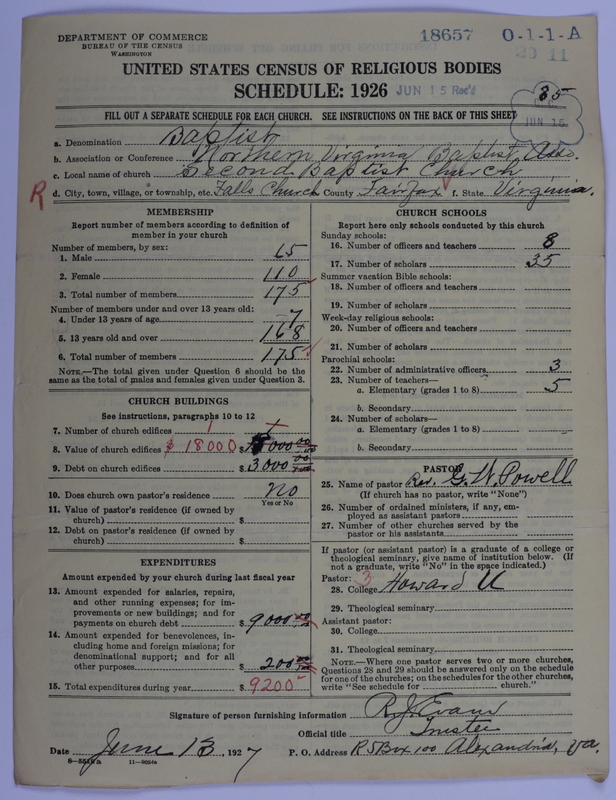 DEPARTMENT OF COMMERCE
BUREAU OF THE CENSUS
WASHINGTON
18657 O-1-1-A
20 11
UNITED STATES CENSUS OF RELIGIOUS BODIES
SCHEDULE: 1926 JUN 15 Rec'd
85
JUN 15
FILL OUT A SEPARATE SCHEDULE FOR EACH CHURCH. SEE INSTRUCTIONS ON THE BACK OF THIS SHEET
a. Denomination Baptist
b. Association or Conference Northern Virginia Baptist Asso.
c. Local name of church Second Baptist Church
R d. City, town, village, or township, etc. Falls Church County Fairfax f. State Virginia.
MEMBERSHIP
Report number of members according to definition of
member in your church
Number of members, by sex:
1. Male 65
2. Female 110
3. Total number of members 175
Number of members under and over 13 years old:
4. Under 13 years of age 7
5. 13 years old and over 168
6. Total number of members 175
NOTE.—The total given under Question 6 should be
the same as the total of males and females given under Question 3.
CHURCH BUILDINGS
See instructions, paragraphs 10 to 12
7. Number of church edifices 1
8. Value of church edifices $18000
9. Debt on church edifices $3000 00
10. Does church own pastor's residence No
Yes or No
11. Value of pastor's residence (if owned by
church) $
12. Debt on pastor's residence (if owned by
church) $
EXPENDITURES
Amount expended by your church during last fiscal year
13. Amount expended for salaries, repairs,
and other running expenses; for im-
provements or new buildings; and for
payments on church debt $9000
14. Amount expended for benevolences, in-
cluding home and foreign missions; for
denominational support; and for all
other purposes $200
15. Total expenditures during year $9200
CHURCH SCHOOLS
Report here only schools conducted by this church
Sunday schools:
16. Number of officers and teachers 8
17. Number of scholars 35
Summer vacation Bible schools:
18. Number of officers and teachers
19. Number of scholars
Week-day religious schools:
20. Number of officers and teachers
21. Number of scholars
Parochial schools:
22. Number of administrative officers 3
23. Number of teachers—
a. Elementary (grades 1 to 8) 5
b. Secondary
24. Number of scholars—
a. Elementary (grades 1 to 8)
b. Secondary
PASTOR
25. Name of pastor Rev. G. W. Powell
(If church has no pastor, write "None")
26. Number of ordained ministers, if any, em-
ployed as assistant pastors
27. Number of other churches served by the
pastor or his assistants
If pastor (or assistant pastor) is a graduate of a college or
theological seminary, give name of institution below. (If
not a graduate, write "No" in the space indicated.)
Pastor: 3
28. College Howard U
29. Theological seminary
Assistant pastor:
30. College
31. Theological seminary
NOTE.—Where one pastor serves two or more churches,
Questions 28 and 29 should be answered only on the schedule
for one of the churches; on the schedules for the other churches,
write "See schedule for church."
Signature of person furnishing information R. J. Evans
Official title Trustee
Date June 13, 1927 P. O. Address R 5 Box 100 Alexandria, Va.
11—9024a